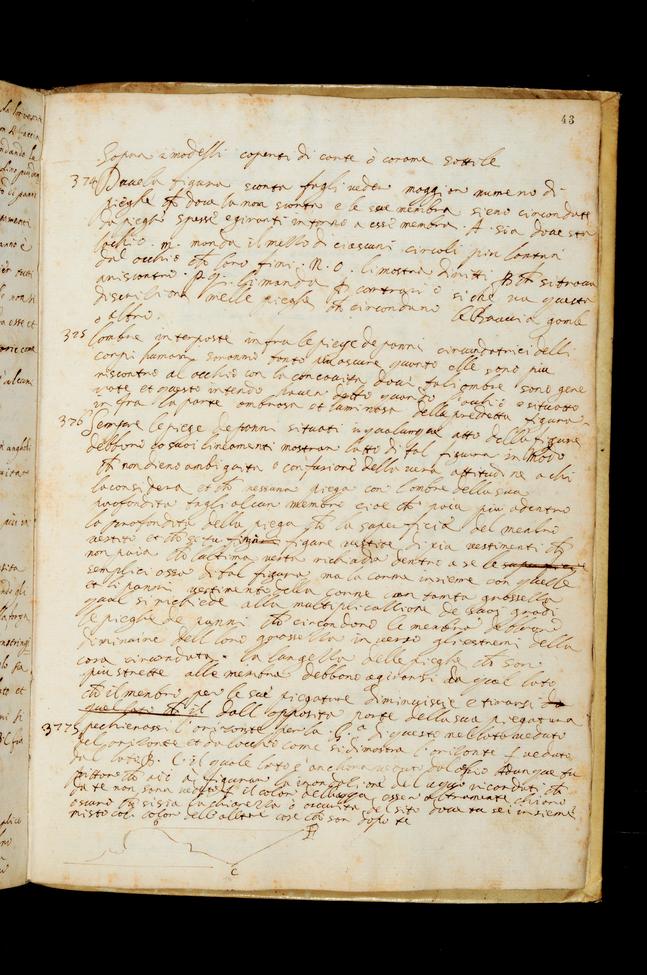 43
Sopra a modelli coperti di carte o corame sottile
374 Dove la figura scorta fagli veder maggior numero di
pieghe che dove la non scorta e le sue membra sieno circondate
da pieghe spesse e giranti intorno a esse membra. A. sia dove sta
l'ochio. m. manda il mezzo di ciascuni circoli piu lontani
dal occhio che loro fini. N. O. li mostra diritti
p. q. li manda per contrario si che usa questa
discretione nelle pieghe che circondano
o altro.
375 L'ombre interposte infra le piege de panni circundatrici delli
corpi humani saranno tanto piu oscure quanto elle sono piu
riscontro al occhio con la concavita dove tali ombre sono gene
rate et questo intendo haver detto quando l'occhio e situato
in fra la parte ombrosa et luminosa della predetta figura
376 Sempre le piege de panni situati in qualunque atto delle figure
debbono co suoi lineamenti mostrare l'atto di tal figura in modo
che non dieno ambiguita o confusione della vera attitudine a chi
la considera et che nessuna piega con l'ombre della sua
profondita tagli alcun membro cioe che paia piu adentro
la profondita della piega che la superficie del membro
vestiti et che se tu figure vestite di piu vestimenti che
non paia che l'ultima vesta richiuda dentro a se le
semplici ossa di tal figura, ma la carne insieme con quelle
et li panni vestimento della carne con tanta grossezza
qual si richiede alla multiplicatione de suoi gradi
le pieghe de panni che circondono le membra debbono
diminuire della loro grossezza in verso gli estremi della
cosa circondata. la lungezza delle pieghe che son
piu strette alle membra debbono agirarsi da quel lato
che il membro per le sue piegature diminuisce e tirarsi
dall opposita parte della sua piegatura
377 l'orizonte
del orizonte et da l'occhio come si dimostra l'orizonte f. veduto
dal lato il quale lato e anchora veduto dal ochio Adunque tu
pittore che ai a figurare la inondatione del aqque ricordati che
da te non sara veduto il color dell aqqua essere altramente chiaro
o oscuro che si sia la chiarezza o oscurita del sito dove tu sei insieme
misto col color dell altre cose che son dopo te
C